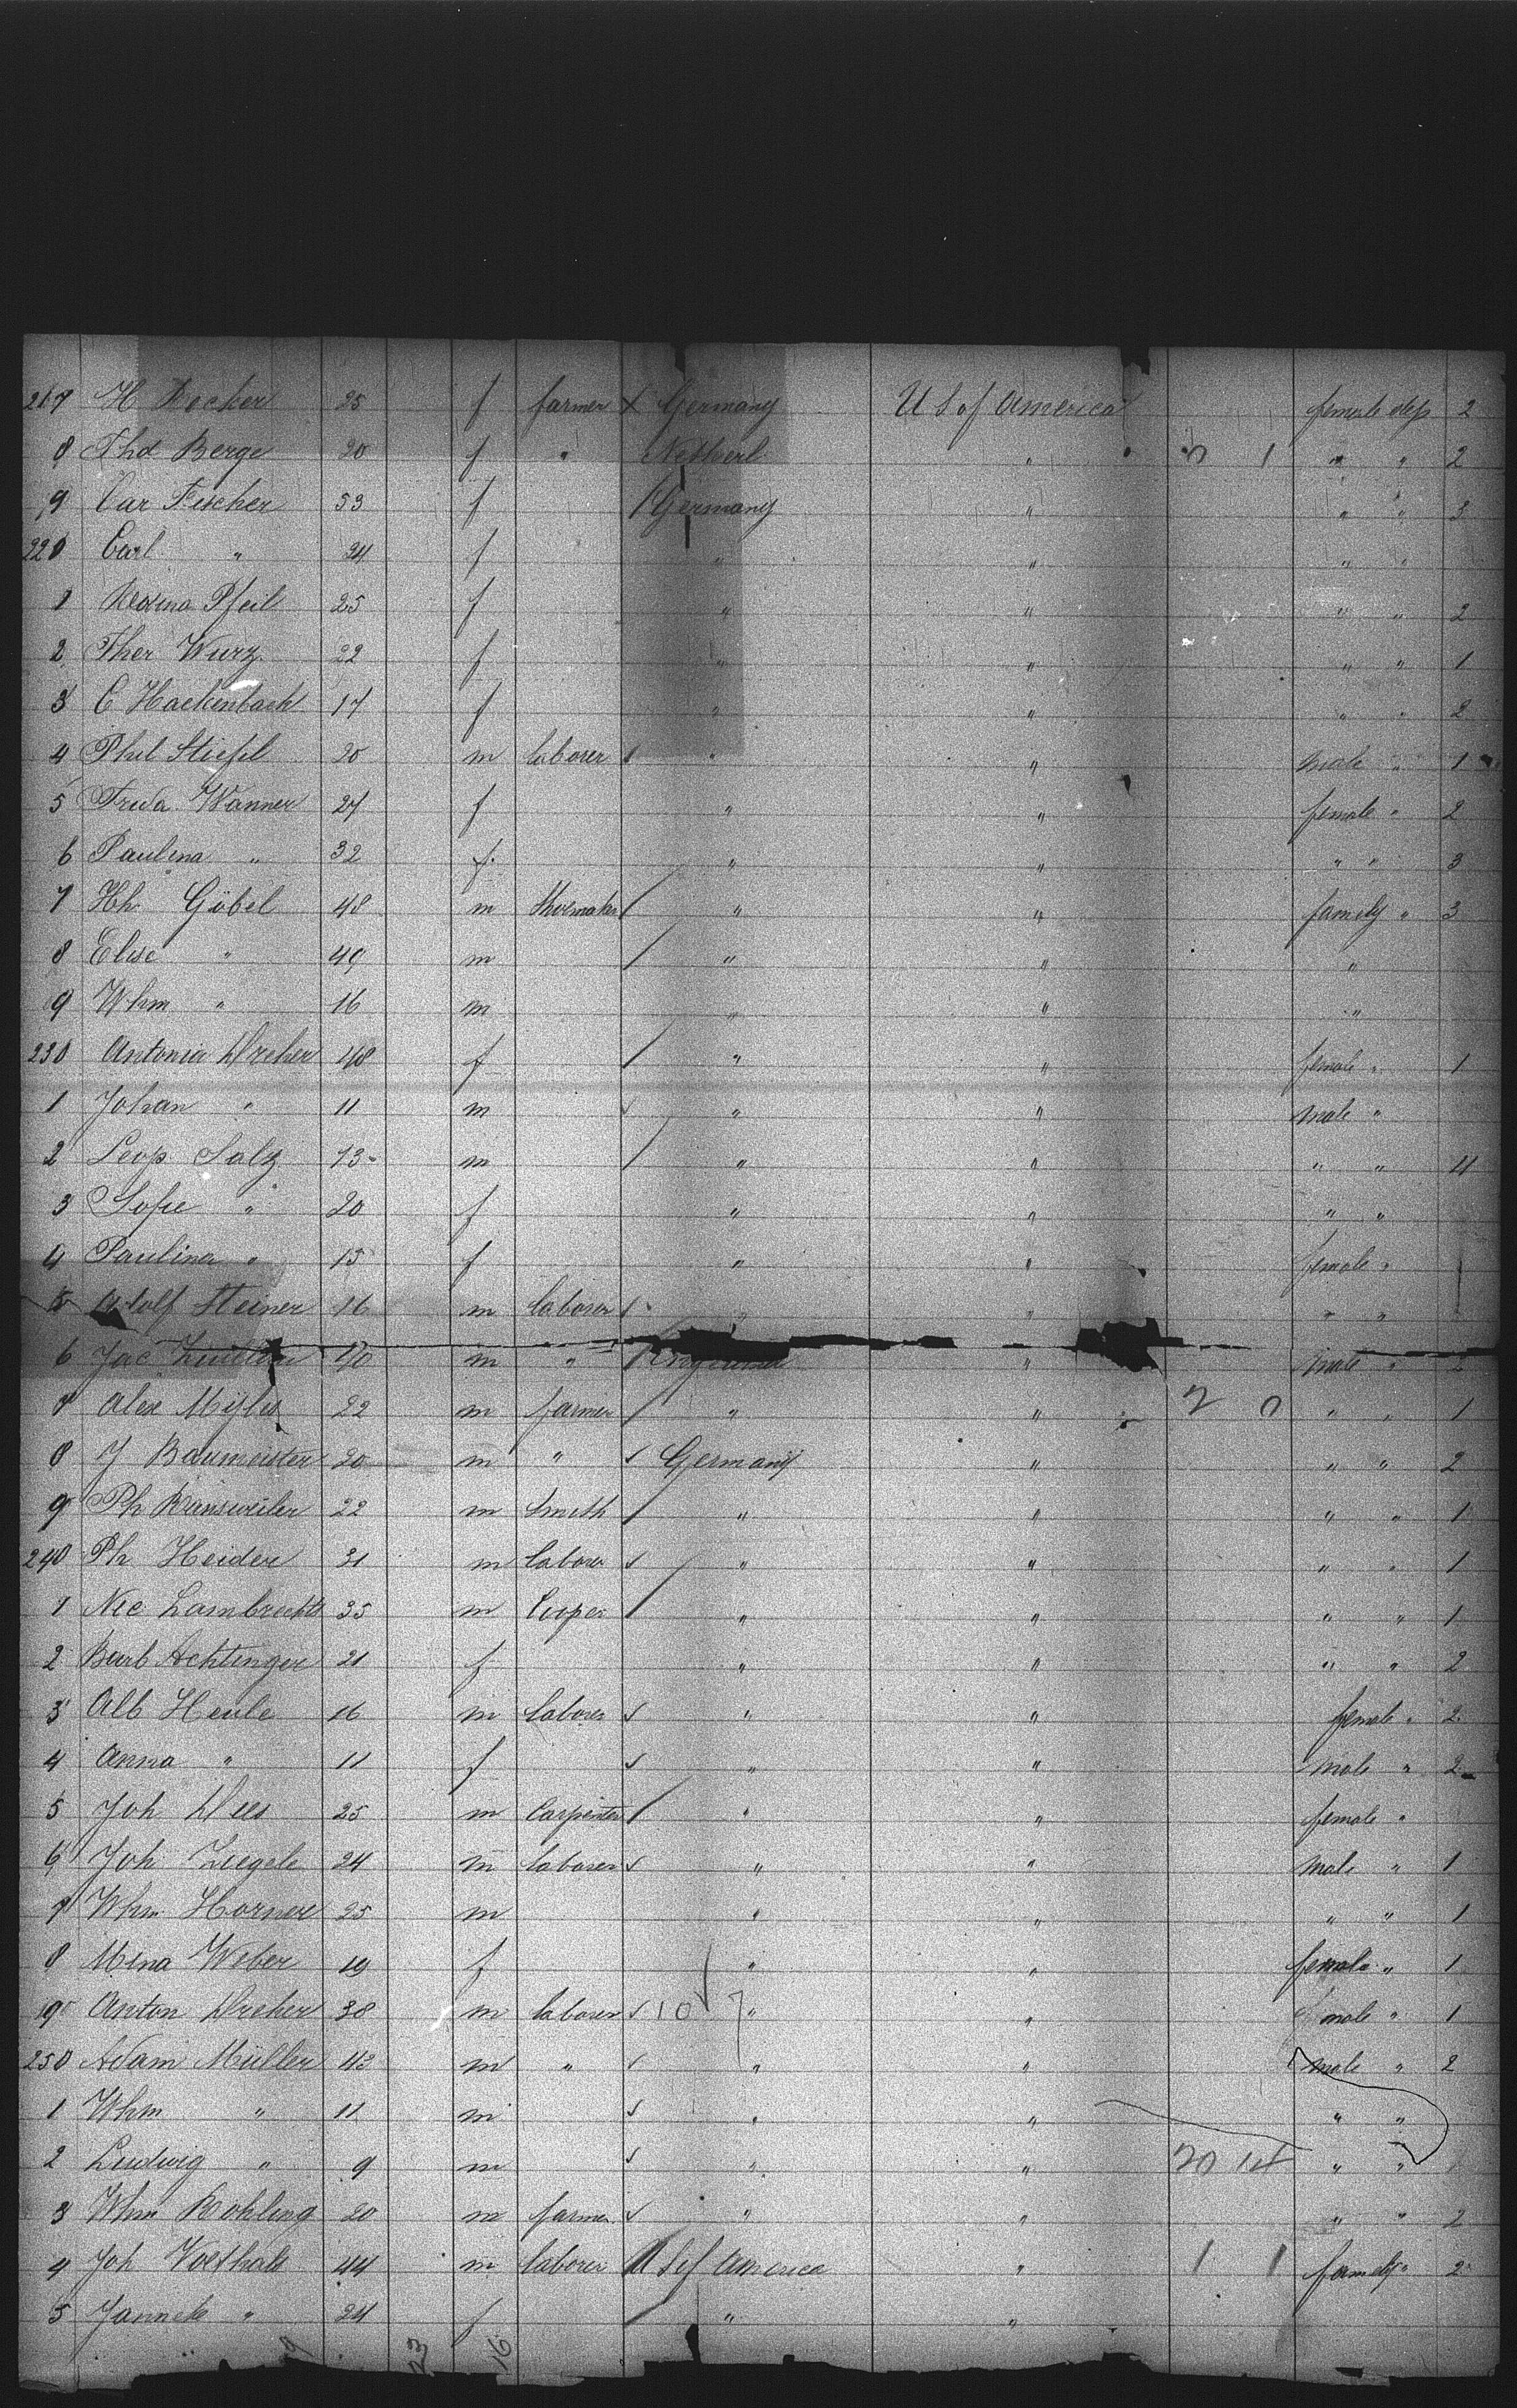 217 H Becker 25 f farmer X Germany U S of America female dep 2
8 Thd Berge 20 f " Netherl " 1 " " 2
9 Car Fischer 53 f / Germany " " " 3
220 Carl " 24 f " " " "
1 Regina Pfeil 25 f " " " " 2
2 Ther Wurz 22 f " " " " 1
3 C Hackenbach 17 f " " " " 2
4 Phil Stiefel 20 m laborer " " male " 1
5 Frida Wanner 27 f " " female " 2
6 Paulina " 32 f " " " " 3
7 Hh Göbel 48 m Shoemaker / " " family " 3
8 Elise " 49 m / " " "
9 Whm " 16 m " " "
230 Antonia Dreher 48 f / " " female " 1
1 Johan " 11 m " " male "
2 Leop Salz 13 m / " " " " 4
3 Sofie " 20 f " " " "
4 Paulina " 15 f " " female "
5 Adolf Steiner 16 m laborer " " " "
6 Jac m " / England " male "
7 Alex 22 m farmer / " " 2 0 " " 1
8 J Baumeister 20 m " Germany " " " 2
9 Ph 22 m Smith / " " " " 1
240 Ph Heider 31 m laborer " " " " 1
1 Nic Lambrecht 35 m Cooper / " " " " 1
2 Barb Achtinger 21 f " " " " 2
3 Alb Heule 16 m laborer " " female " 2
4 Anna " 11 f " " male " 2
5 Joh Dees 25 m Carpenter / " " female "
6 Joh Ziegele 24 m laborer " " male " 1
7 Whm Horner 25 m " " " " 1
8 Mina Weber 19 f " " female " 1
9 Anton Dreher 38 m laborer 10 7 " " male " 1
250 Adam Müller 43 m " " " male " 2
1 Whm " 11 m " " " "
2 Ludwig " 9 m " " 20 14 " "
3 Whm Rohling 20 m farmer " " " " 2
4 Joh 44 m laborer U S of America " 1 1 family " 2
5 Janneke " 24 f / " "
16